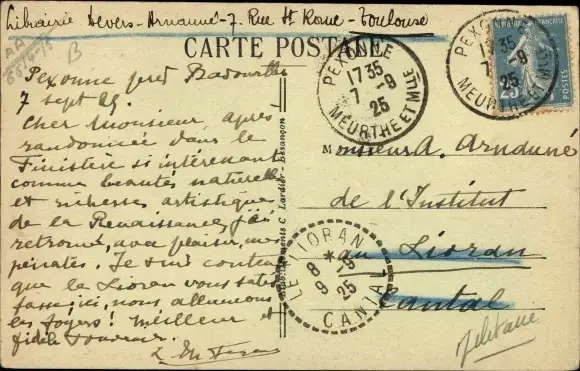 Librairie - 7, Rue St Rome - Toulouse
B
CARTE POSTALE
PEXONNE
17 35
7 - 9
25
MEURTHE ET MLLE
PEXONNE
17 35
7 - 9
25
MEURTHE ET MLLE
POSTES
Pexonne près Badonviller
7 sept 25.
Cher Monsieur, après
randonnée dans le
Finistère si intéressant
comme beautés naturelles
et richesses artistiques
de la Renaissance, j'ai
retrouvé, avec plaisir, mes
pénates. Je suis content
que le Lioran vous
ici, nous allumons
les foyers! Meilleur et
fidèle souvenir.
Monsieur A.
de l'Institut
au Lioran
Cantal
LE LIORAN
8 * - 9
9 25
CANTAL
Etablissements C. Lardier - Besançon